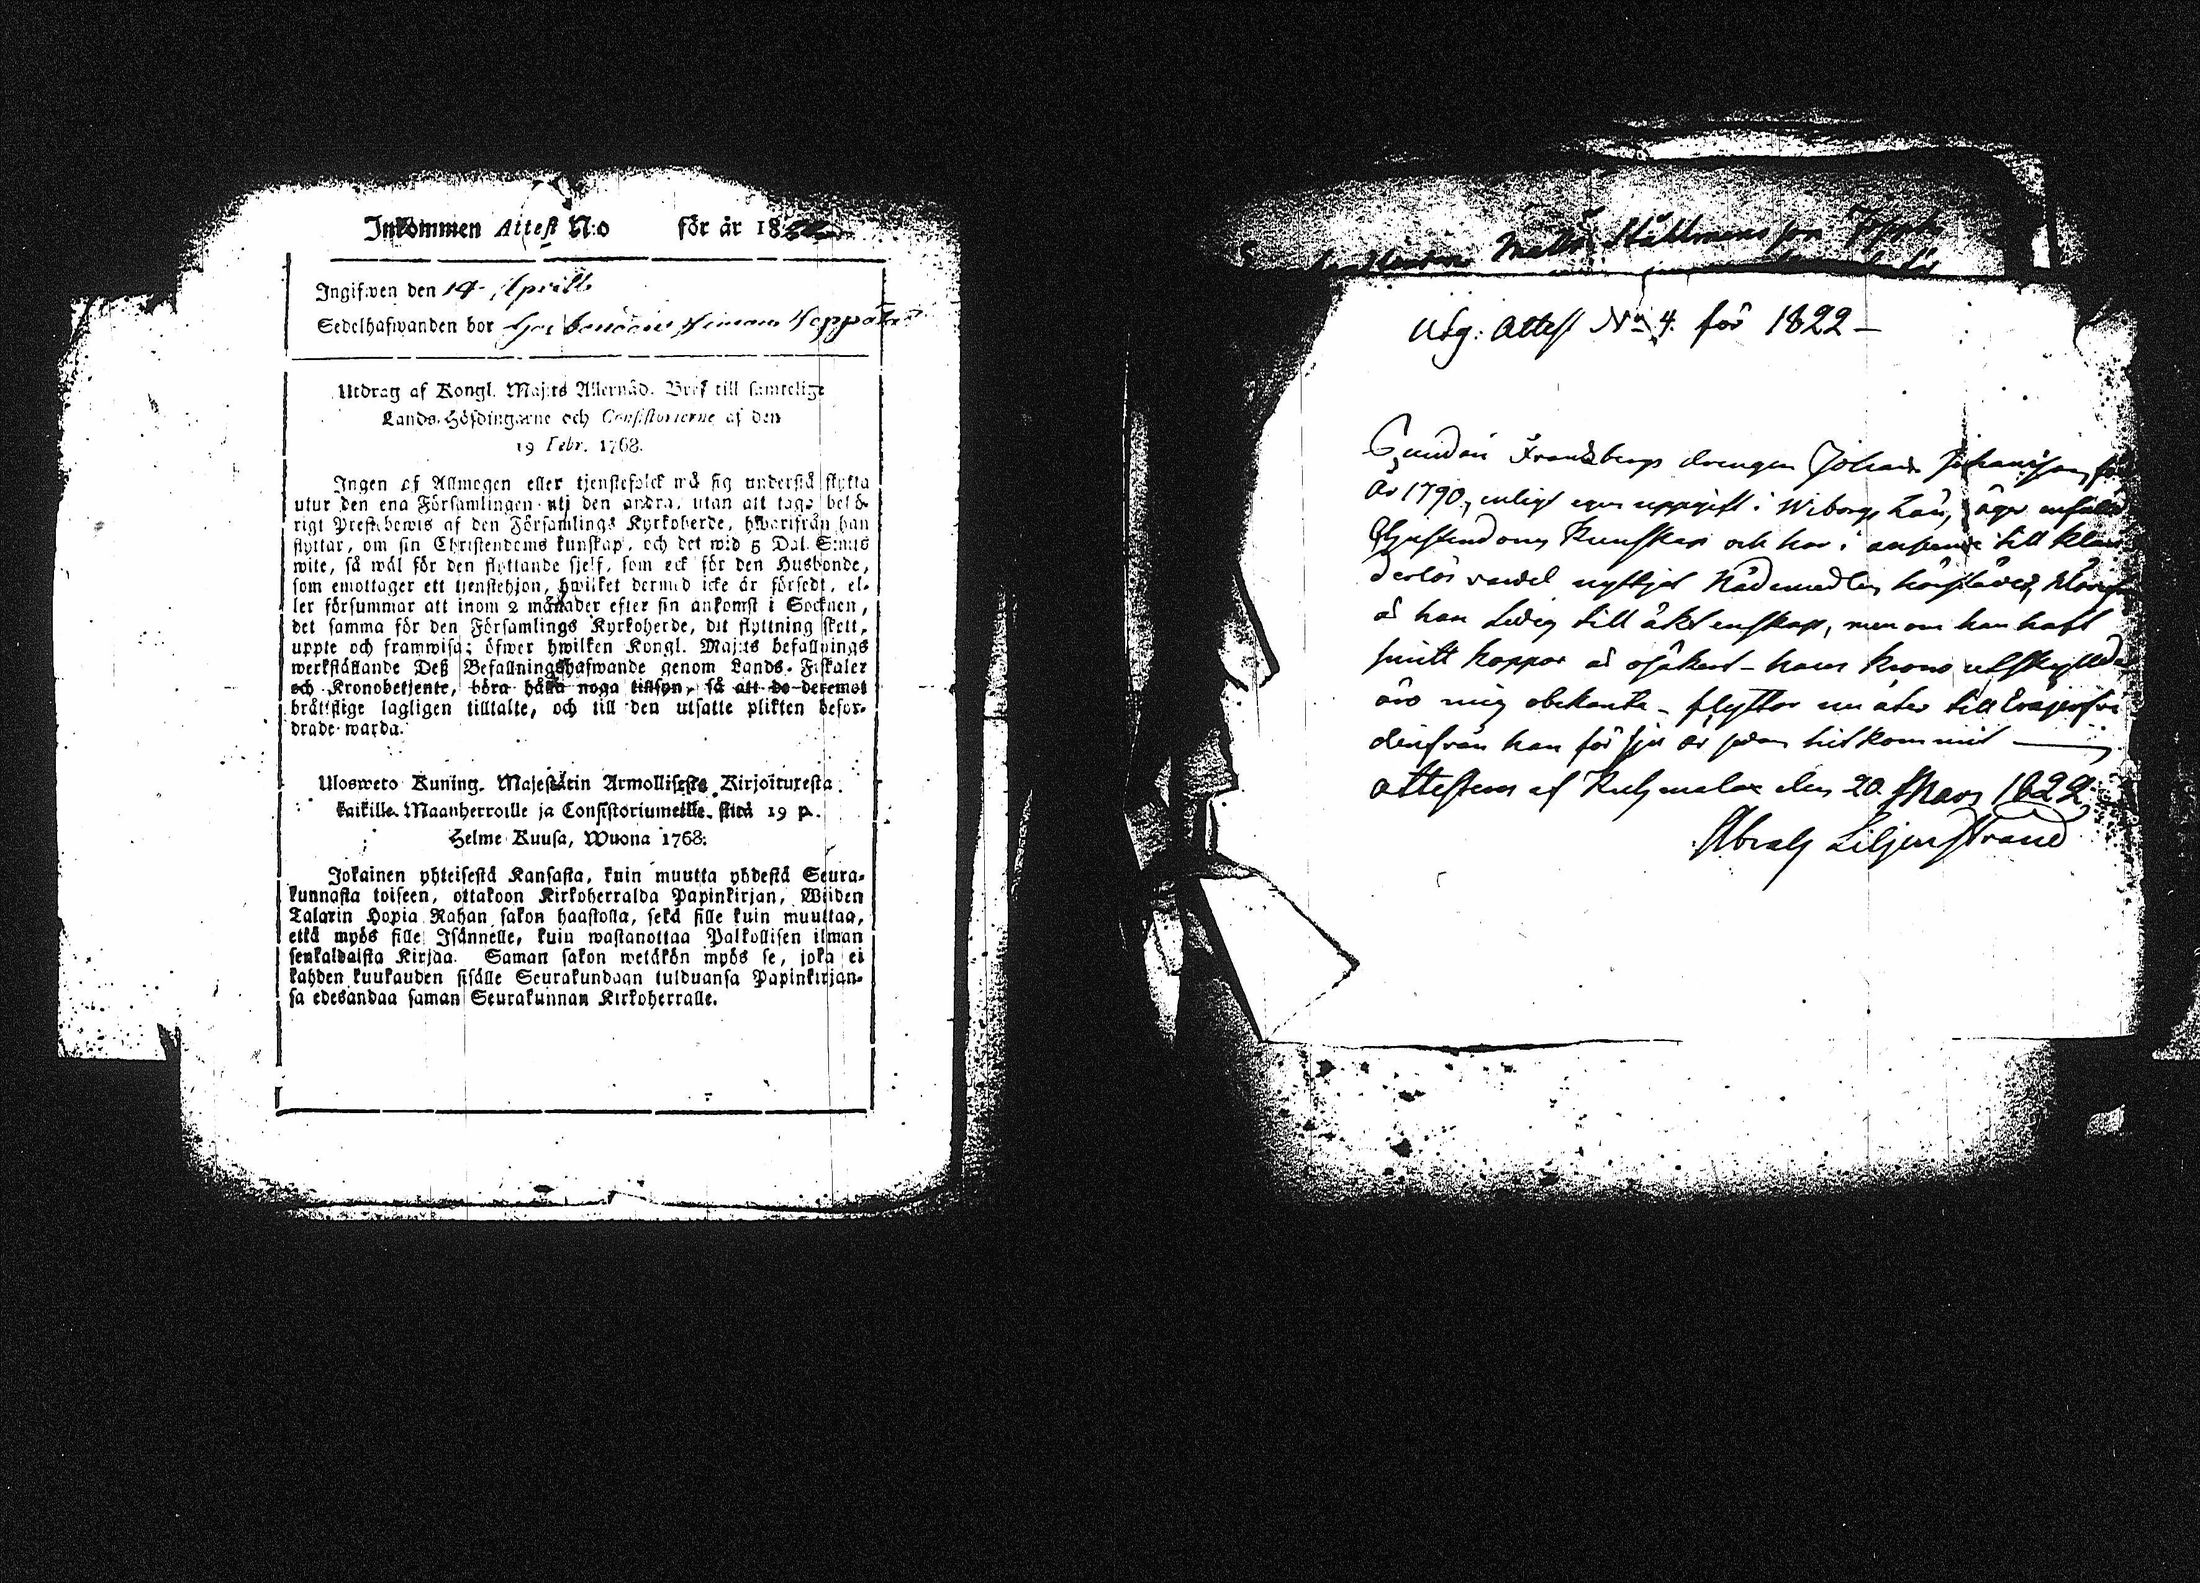 Inkommen Attest N:o för år 1822
Ingifwen den 14 Aprill
Sedelhafwanden bor
Utdrag af Kongl. Maj:ts Allernåd. Bref till samtelige
Lands-Höfdingarne och Consistorierne af den
19 Febr. 1768.
Ingen af Allmogen eller tjenstefolck må sig understå flytta
utur den ena Församlingen uti den andra, utan att taga behö-
rigt Prestebewis af den Församlings Kyrkoherde, hwarifrån han
flyttar, om sin Christendoms kunskap, och det wid 5 Dal. S:mts
wite, så wäl för den flyttande sjelf, som ock för den Husbonde,
som emottager ett tjenstehjon, hwilket dermed icke är försedt, el-
ler försummar att inom 2 månader efter sin ankomst i Socknen,
det samma för den Församlings Kyrkoherde, dit flyttning skett,
uppte och framwisa; öfwer hwilken Kongl. Maj:ts befallnings
werkställande Deß Befallningshafwande genom Lands-Fiskaler
och Kronobetjente, böra hålla noga tillsyn, så att de deremot
brättslige lagligen tilltalte, och till den utsatte plikten befor-
drade warda.
Ulosweto Kuning. Majestätin Armollisesta Kirjoituxesta
kaikille Maanherroille ja Consistoriumeille, siitä 19 p.
Helme Kuusa, Wuona 1768.
Jokainen yhteisestä Kansasta, kuin muutta yhdestä Seura-
kunnasta toiseen, ottakoon Kirkoherralda Papinkirjan, Wiiden
Talarin Hopia Rahan sakon haastolla, sekä sille kuin muuttaa,
että myös sille Isännelle, kuin wastanottaa Palkollisen ilman
senkaldaista Kirjaa. Saman sakon wetäkön myös se, joka ei
kahden kuukauden sisälle Seurakundaan tulduansa Papinkirjan-
sa edesandaa saman Seurakunnan Kirkoherralle.
Utg: Attest No 4. för 1822 –
drengen Johan Johansson
år 1790, enligt egen uppgift i Wiborgs Län, äger
Christendoms Kunskap och har i anseende till klan
derlös vandel nyttjat Nådemedlen
är han Ledig till äktenskap, men om han haft
smitt koppor är osäkert – hans krono utskyllder
äro mig obekante – flyttar nu åter till
derifrån han för sju år sedan hitkommit —
attesteras af den 20 Mars 1822
Liljenstrand